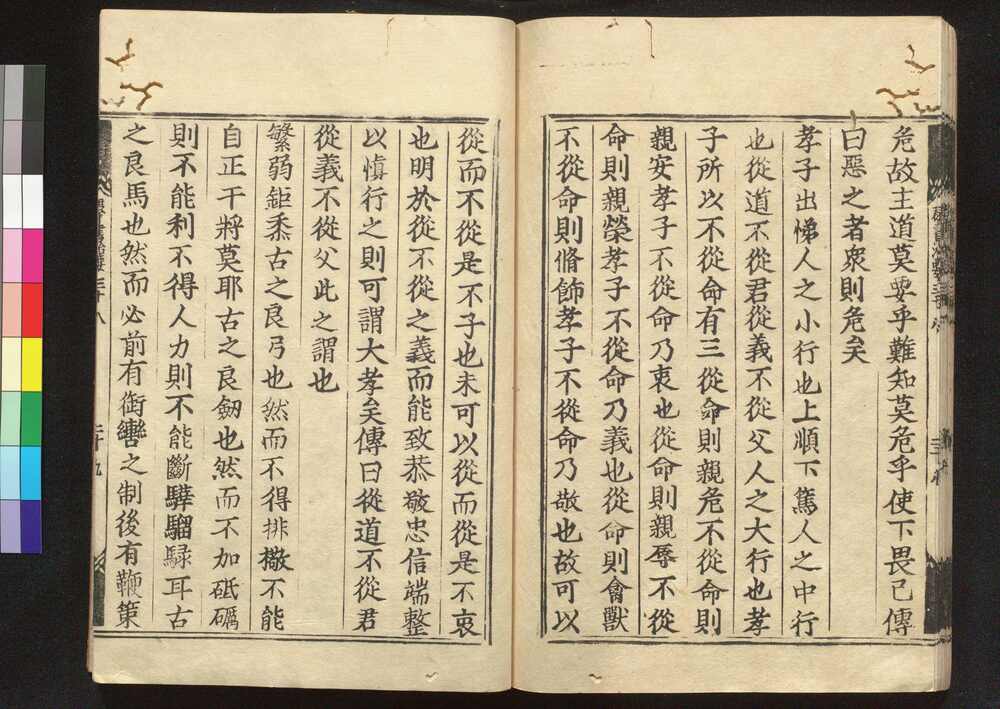 危故主道莫要乎難知莫危乎使下畏己傳
曰惡之者衆則危矣
孝子出悌人之小行也上順下篤人之中行
也從道不從君從義不從父人之大行也孝
子所以不從命有三從命則親危不從命則
親安孝子不從命乃衷也從命則親辱不從
命則親榮孝子不從命乃義也從命則禽獸
不從命則脩飾孝子不從命乃敬也故可以
從而不從是不子也未可以從而從是不衷
也明於從不從之義而能致恭敬忠信端整
以慎行之則可謂大孝矣傳曰從道不從君
從義不從父此之謂也
繁弱鉅黍古之良弓也然而不得排檠不能
自正干將莫耶古之良劒也然而不加砥礪
則不能利不得人力則不能斷驊騮騄耳古
之良馬也然而必前有銜轡之制後有鞭策